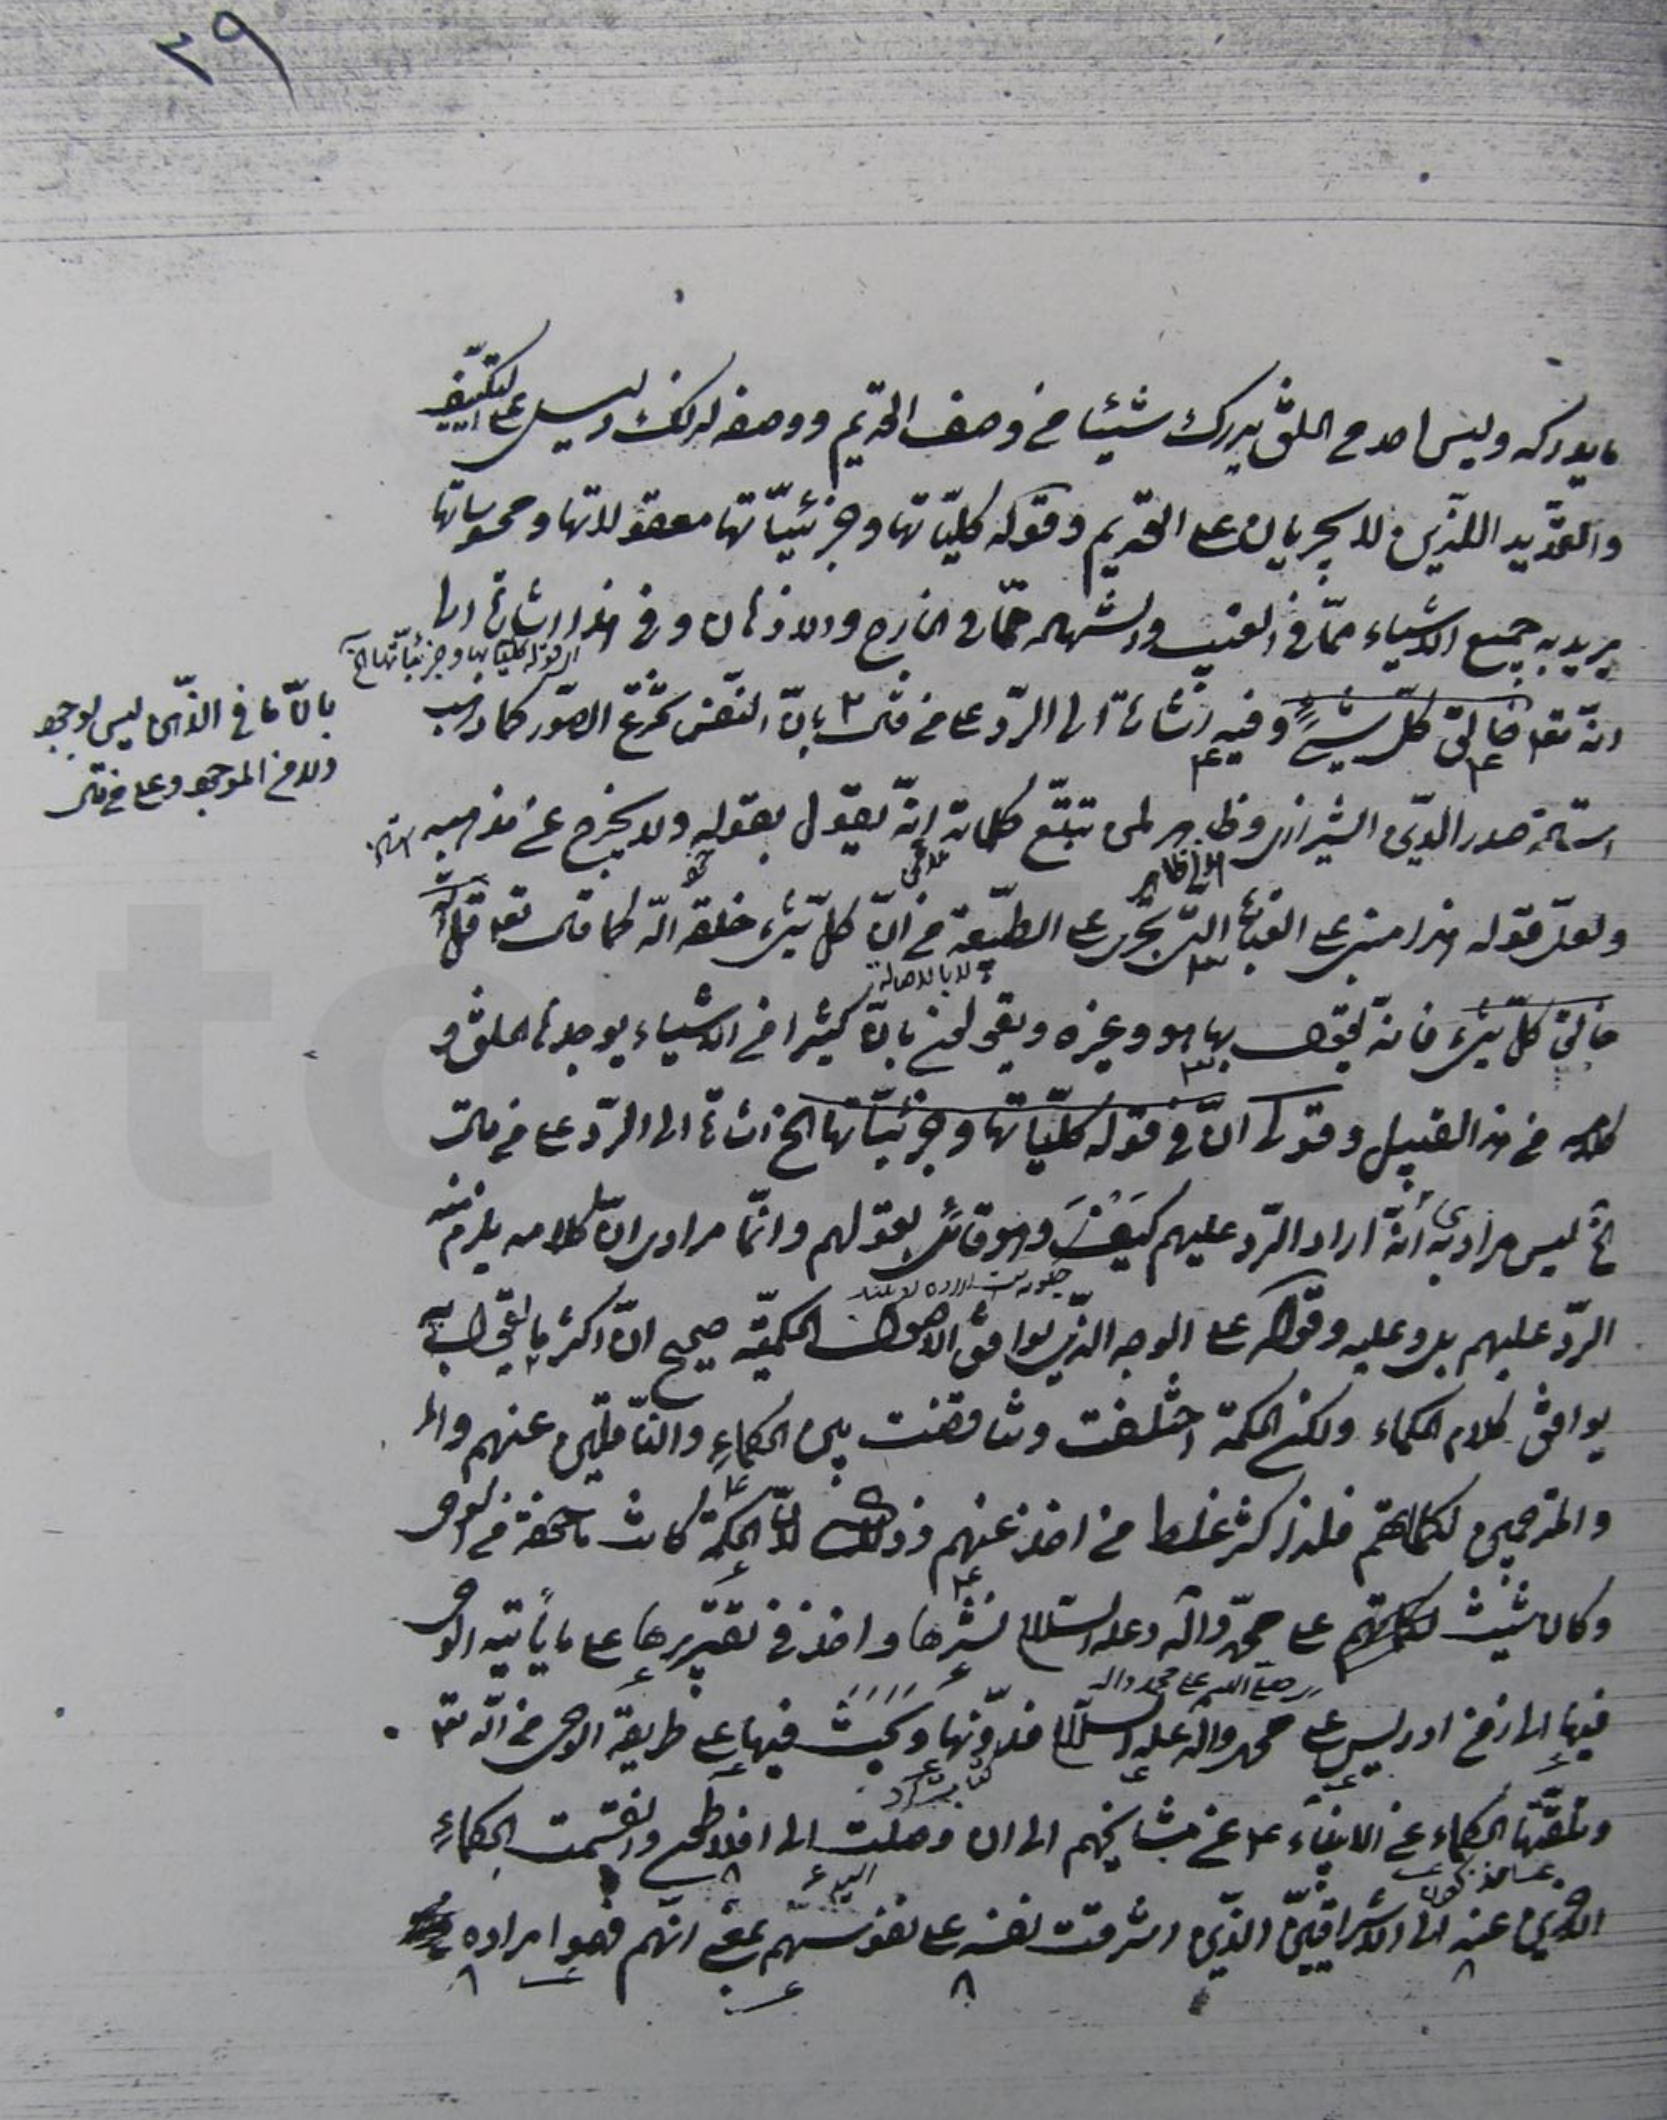 ٢٩
ما يدركه وليس احد من الخلق يدرك شيئا من وصف القديم ووصفه لذلك ليس على التكييف
والتحديد اللذين لا يجريان على القديم وقوله كلياتها وجزئياتها معقولاتها ومحسوساتها
يريد به جميع الاشياء ممّا في الغيب والشهادة ممّا في الخارج والاذهان وفي هذا اشارة الى
اي قوله كلياتها وجزئياتها الخ
انّه تعا خالق كلّ شيءٍ وفيه اشارة الى الردّ على من قال بانّ النفس تخترع الصّور كما ذهب
بانّ ما في الذّهن ليس بوجود
ولا من الموجود وعلى من قال
استاده صدر الدّين الشيرازي وظاهر لمن تتبّع كلماته انّه يقول بقوله ولا يخرج عن مذهبه
ولعلّ قوله هذا مبني على العبارة التي تجري على الطبيعة من انّ كلّ شيء خلقه اللّه كما قال تعا قل اللّه
لا بالاصالة
خالق كلّ شيء فانه يقول بها هو وغيره ويقولون بانّ كثيرا من الاشياء يوجدها الخلق و
كلامه من هذا القبيل وقولي انّ في قوله كلّياتها وجزئيّاتها الخ اشارة الى الردّ على من قال
الخ ليس مرادي به أنّه اراد الرّد عليهم كَيْفَ وهو قائل بقولهم وانّما مرادي انّ كلامه يلزم منه
الردّ عليهم بل وعليه وقوله على الوجه الذّي يوافق الاصول الحكميّة صحيح انّ اكثر ما يقول به
يوافق كلام الحكماء ولكن الحكمة اختلفت وتناقضت بين الحكماءِ والنّاقلين عنهم وا
والمترجمين لكلماتهم فلذا كثر غلط من اخذ عنهم وذلك لانّ الحكمة كانت مأخوذة من الوحي
وكان شيث على محمّد وآله وعليه السلام نشرها واخذ في تقريرها على ما يأتيه الوحي
صلى الله على محمد واله
فيها الى زمن ادريس على محمد وآله وعليه السلام فدوّنها وكَتَبَ فيها على طريقة الوحي من اللّه تعا
وتلقّتها الحكماء عن الانبياء ع عن مشايخهم الى ان وصلت الى افلاطون وانقسمت الحكماءِ
الآخذين عنه الى الاشراقيّين الذّين اشرقت نفسه على نفوسهم بمعنى انّهم فهموا مراده